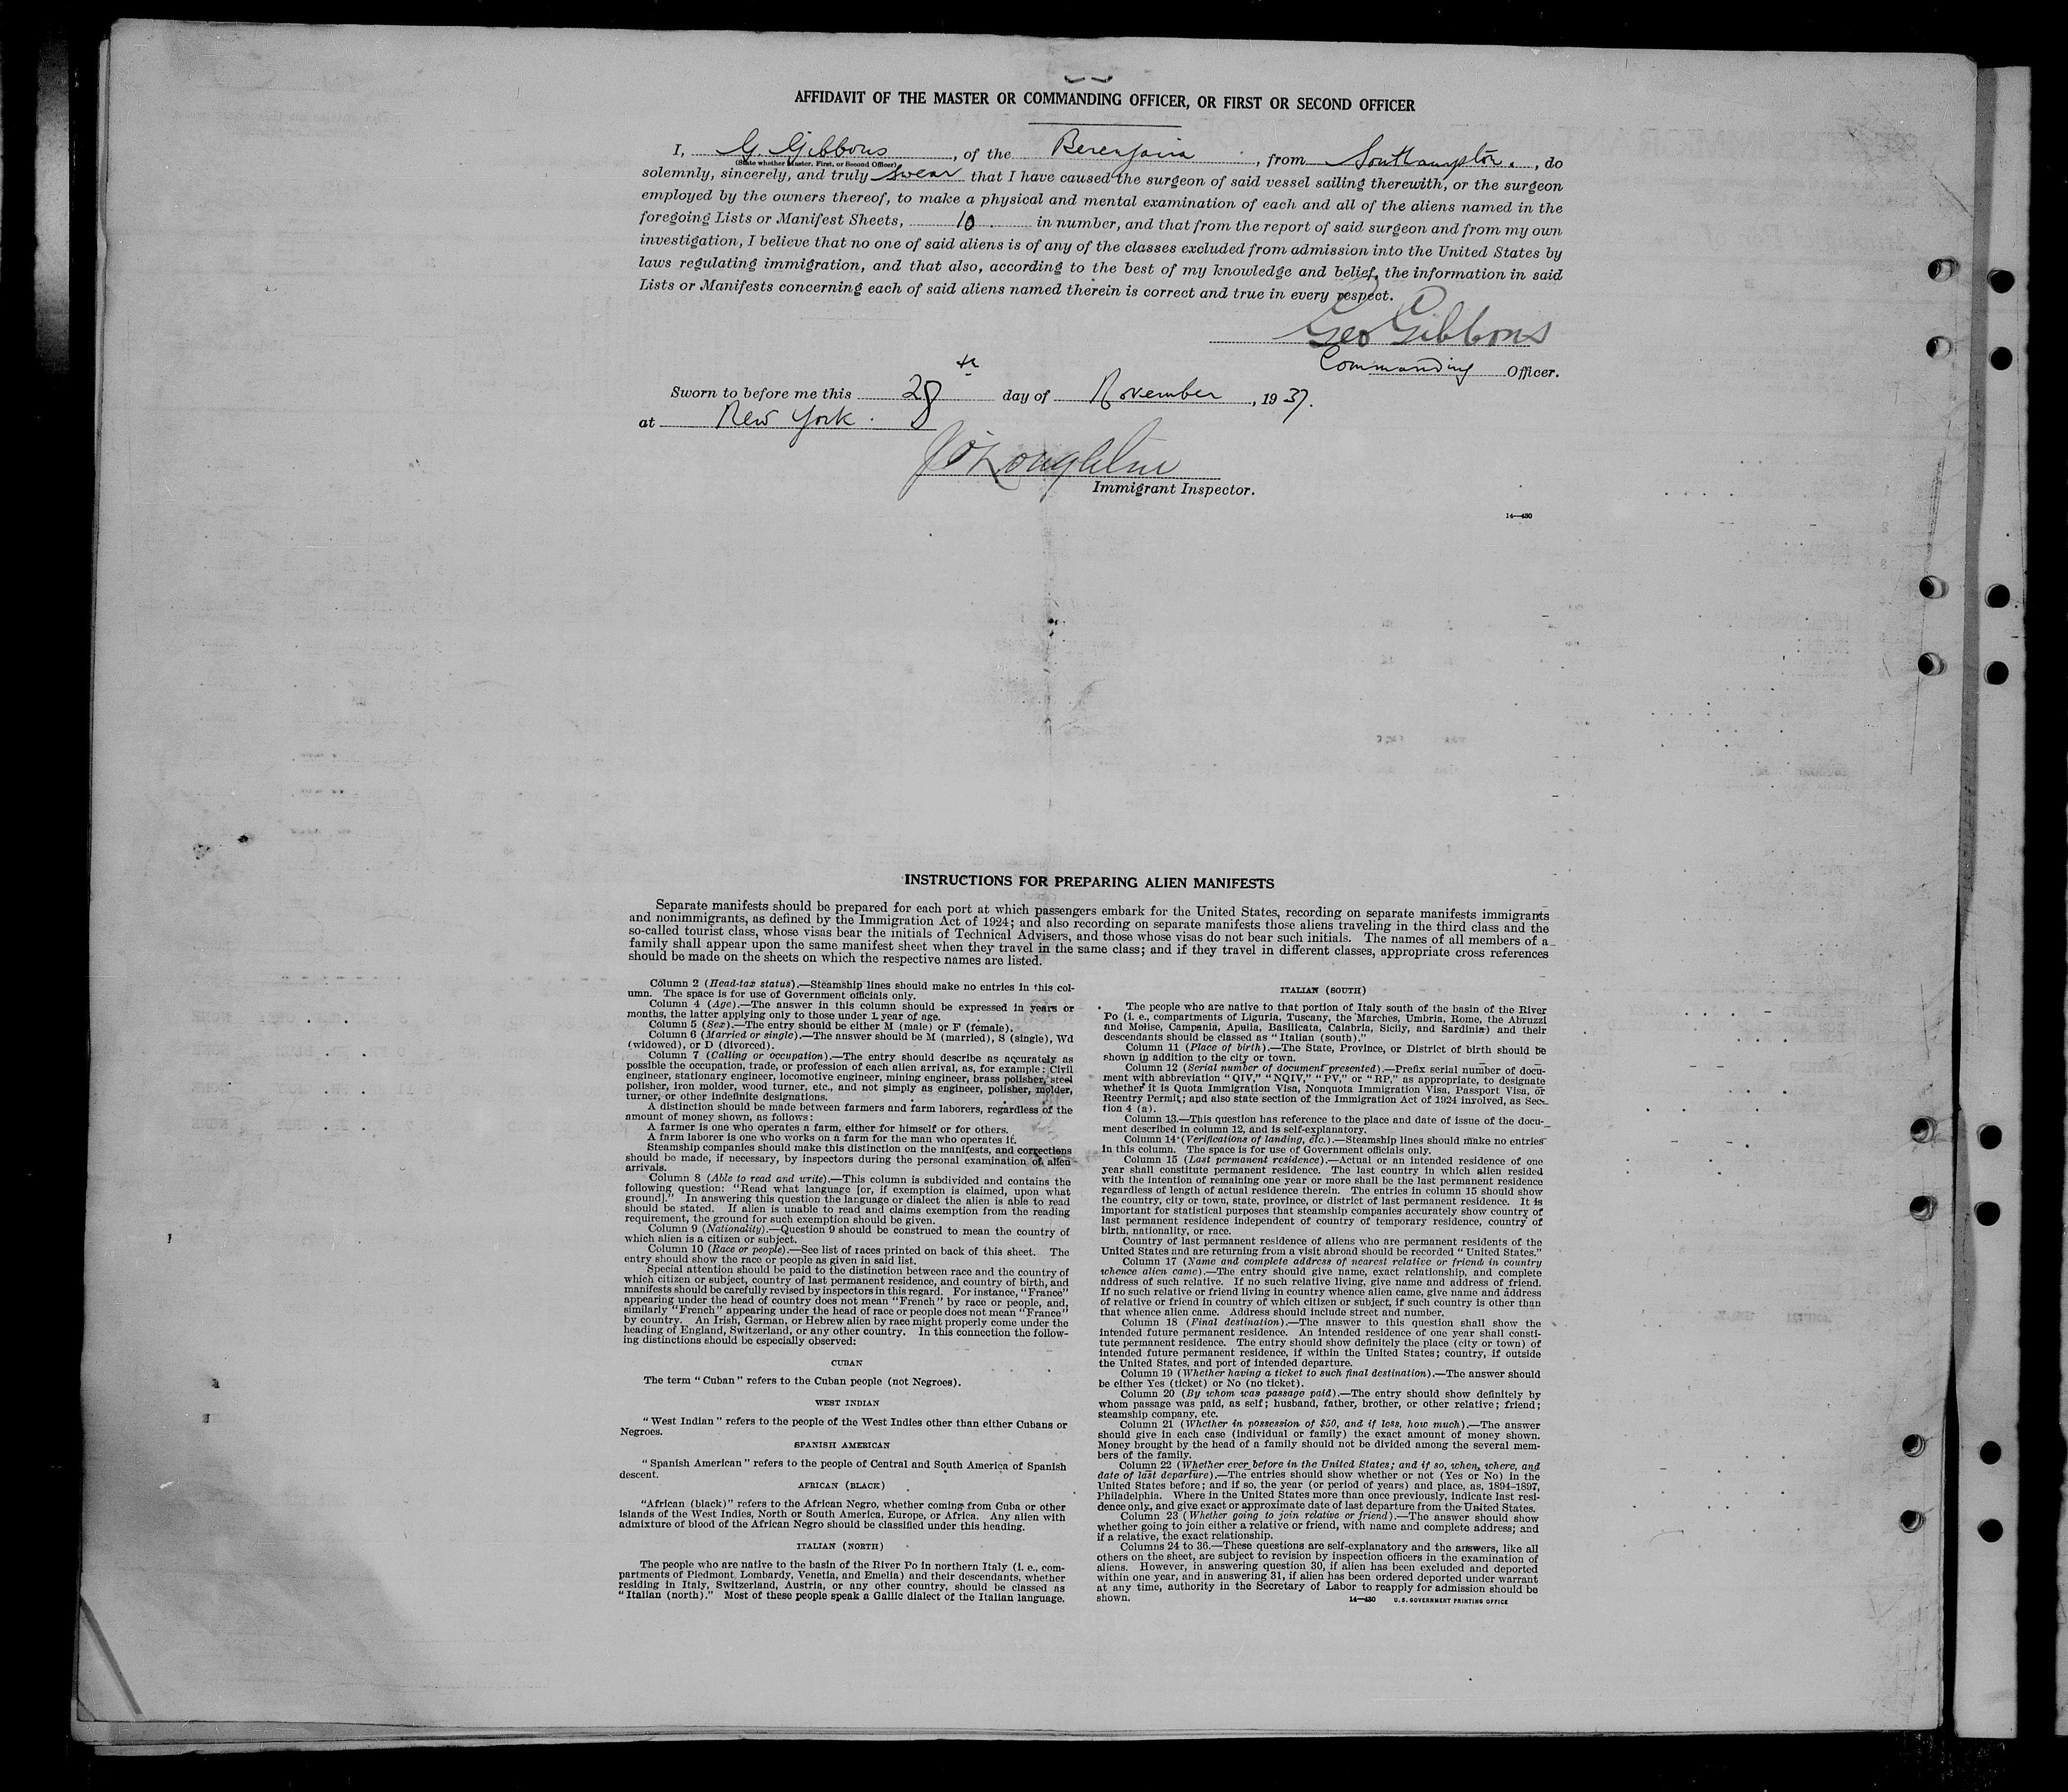 AFFIDAVIT OF THE MASTER OR COMMANDING OFFICER, OR FIRST OR SECOND OFFICER
I, G. Gibbons, of the Berengaria, from Southampton., do
(State whether Master, First, or Second Officer)
solemnly, sincerely, and truly swear that I have caused the surgeon of said vessel sailing therewith, or the surgeon
employed by the owners thereof, to make a physical and mental examination of each and all of the aliens named in the
foregoing Lists or Manifest Sheets, 10 in number, and that from the report of said surgeon and from my own
investigation, I believe that no one of said aliens is of any of the classes excluded from admission into the United States by
laws regulating immigration, and that also, according to the best of my knowledge and belief, the information in said
Lists or Manifests concerning each of said aliens named therein is correct and true in every respect.
Geo Gibbons
Commanding Officer.
Sworn to before me this 28th day of November, 1937.
at New York.
J O'Loughlin
Immigrant Inspector.
14—430
INSTRUCTIONS FOR PREPARING ALIEN MANIFESTS
Separate manifests should be prepared for each port at which passengers embark for the United States, recording on separate manifests immigrants
and nonimmigrants, as defined by the Immigration Act of 1924; and also recording on separate manifests those aliens traveling in the third class and the
so-called tourist class, whose visas bear the initials of Technical Advisers, and those whose visas do not bear such initials. The names of all members of a
family shall appear upon the same manifest sheet when they travel in the same class; and if they travel in different classes, appropriate cross references
should be made on the sheets on which the respective names are listed.
Column 2 (Head-tax status).—Steamship lines should make no entries in this col-
umn. The space is for use of Government officials only.
Column 4 (Age).—The answer in this column should be expressed in years or
months, the latter applying only to those under 1 year of age.
Column 5 (Sex).—The entry should be either M (male) or F (female).
Column 6 (Married or single).—The answer should be M (married), S (single), Wd
(widowed), or D (divorced).
Column 7 (Calling or occupation).—The entry should describe as accurately as
possible the occupation, trade, or profession of each alien arrival, as, for example: Civil
engineer, stationary engineer, locomotive engineer, mining engineer, brass polisher, steel
polisher, iron molder, wood turner, etc., and not simply as engineer, polisher, molder,
turner, or other indefinite designations.
A distinction should be made between farmers and farm laborers, regardless of the
amount of money shown, as follows:
A farmer is one who operates a farm, either for himself or for others.
A farm laborer is one who works on a farm for the man who operates it.
Steamship companies should make this distinction on the manifests, and corrections
should be made, if necessary, by inspectors during the personal examination of alien
arrivals.
Column 8 (Able to read and write).—This column is subdivided and contains the
following question: "Read what language [or, if exemption is claimed, upon what
ground]." In answering this question the language or dialect the alien is able to read
should be stated. If alien is unable to read and claims exemption from the reading
requirement, the ground for such exemption should be given.
Column 9 (Nationality).—Question 9 should be construed to mean the country of
which alien is a citizen or subject.
Column 10 (Race or people).—See list of races printed on back of this sheet. The
entry should show the race or people as given in said list.
Special attention should be paid to the distinction between race and the country of
which citizen or subject, country of last permanent residence, and country of birth, and
manifests should be carefully revised by inspectors in this regard. For instance, "France"
appearing under the head of country does not mean "French" by race or people, and,
similarly "French" appearing under the head of race or people does not mean "France"
by country. An Irish, German, or Hebrew alien by race might properly come under the
heading of England, Switzerland, or any other country. In this connection the follow-
ing distinctions should be especially observed:
CUBAN
The term "Cuban" refers to the Cuban people (not Negroes).
WEST INDIAN
"West Indian" refers to the people of the West Indies other than either Cubans or
Negroes.
SPANISH AMERICAN
"Spanish American" refers to the people of Central and South America of Spanish
descent.
AFRICAN (BLACK)
"African (black)" refers to the African Negro, whether coming from Cuba or other
islands of the West Indies, North or South America, Europe, or Africa. Any alien with
admixture of blood of the African Negro should be classified under this heading.
ITALIAN (NORTH)
The people who are native to the basin of the River Po in northern Italy (i. e., com-
partments of Piedmont, Lombardy, Venetia, and Emelia) and their descendants, whether
residing in Italy, Switzerland, Austria, or any other country, should be classed as
"Italian (north)." Most of these people speak a Gallic dialect of the Italian language.
ITALIAN (SOUTH)
The people who are native to that portion of Italy south of the basin of the River
Po (i. e., compartments of Liguria, Tuscany, the Marches, Umbria, Rome, the Abruzzi
and Molise, Campania, Apulia, Basilicata, Calabria, Sicily, and Sardinia) and their
descendants should be classed as "Italian (south)."
Column 11 (Place of birth).—The State, Province, or District of birth should be
shown in addition to the city or town.
Column 12 (Serial number of document presented).—Prefix serial number of docu-
ment with abbreviation "QIV," "NQIV," "PV," or "RP," as appropriate, to designate
whether it is Quota Immigration Visa, Nonquota Immigration Visa, Passport Visa, or
Reentry Permit; and also state section of the Immigration Act of 1924 involved, as Sec-
tion 4 (a).
Column 13.—This question has reference to the place and date of issue of the docu-
ment described in column 12, and is self-explanatory.
Column 14 (Verifications of landing, etc.).—Steamship lines should make no entries
in this column. The space is for use of Government officials only.
Column 15 (Last permanent residence).—Actual or an intended residence of one
year shall constitute permanent residence. The last country in which alien resided
with the intention of remaining one year or more shall be the last permanent residence
regardless of length of actual residence therein. The entries in column 15 should show
the country, city or town, state, province, or district of last permanent residence. It is
important for statistical purposes that steamship companies accurately show country of
last permanent residence independent of country of temporary residence, country of
birth, nationality, or race.
Country of last permanent residence of aliens who are permanent residents of the
United States and are returning from a visit abroad should be recorded "United States."
Column 17 (Name and complete address of nearest relative or friend in country
whence alien came).—The entry should give name, exact relationship, and complete
address of such relative. If no such relative living, give name and address of friend.
If no such relative or friend living in country whence alien came, give name and address
of relative or friend in country of which citizen or subject, if such country is other than
that whence alien came. Address should include street and number.
Column 18 (Final destination).—The answer to this question shall show the
intended future permanent residence. An intended residence of one year shall consti-
tute permanent residence. The entry should show definitely the place (city or town) of
intended future permanent residence, if within the United States; country, if outside
the United States, and port of intended departure.
Column 19 (Whether having a ticket to such final destination).—The answer should
be either Yes (ticket) or No (no ticket).
Column 20 (By whom was passage paid).—The entry should show definitely by
whom passage was paid, as self; husband, father, brother, or other relative; friend;
steamship company, etc.
Column 21 (Whether in possession of $50, and if less, how much).—The answer
should give in each case (individual or family) the exact amount of money shown.
Money brought by the head of a family should not be divided among the several mem-
bers of the family.
Column 22 (Whether ever before in the United States; and if so, when, where, and
date of last departure).—The entries should show whether or not (Yes or No) in the
United States before; and if so, the year (or period of years) and place, as, 1894–1897,
Philadelphia. Where in the United States more than once previously, indicate last resi-
dence only, and give exact or approximate date of last departure from the United States.
Column 23 (Whether going to join relative or friend).—The answer should show
whether going to join either a relative or friend, with name and complete address; and
if a relative, the exact relationship.
Columns 24 to 36.—These questions are self-explanatory and the answers, like all
others on the sheet, are subject to revision by inspection officers in the examination of
aliens. However, in answering question 30, if alien has been excluded and deported
within one year, and in answering 31, if alien has been ordered deported under warrant
at any time, authority in the Secretary of Labor to reapply for admission should be
shown.
14—430 U. S. GOVERNMENT PRINTING OFFICE